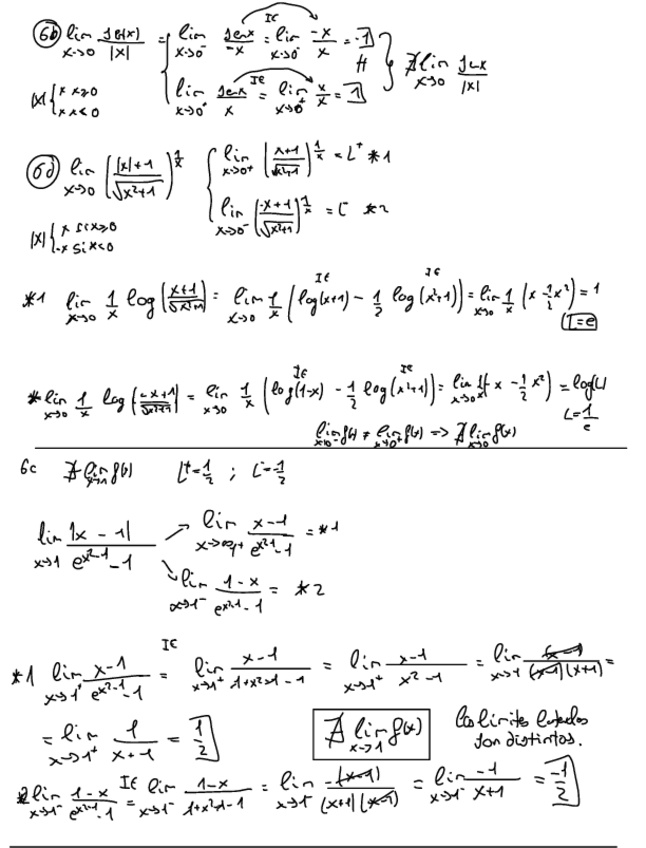 6b) lim x→0 sen(x)/|x| = { lim x→0⁻ sen x/-x = (IE) lim x→0⁻ -x/x = -1
|x| { x x≥0
-x x<0
lim x→0⁺ sen x/x = (IE) lim x→0⁺ x/x = 1 } ∄ lim x→0 sen x/|x|
6d) lim x→0 (|x|+1/√x²+1)^(1/x) { lim x→0⁺ (x+1/√x²+1)^(1/x) = L⁺ *1
lim x→0⁻ (-x+1/√x²+1)^(1/x) = L⁻ *2
|x| { x si x≥0
-x si x<0
*1 lim x→0 1/x log(x+1/√x²+1) = lim x→0 1/x (log(x+1) - 1/2 log(x²+1)) = lim x→0 1/x (x - 1/2 x²) = 1
L=e
* lim x→0 1/x log(-x+1/√x²+1) = lim x→0 1/x (log(1-x) - 1/2 log(x²+1)) = lim x→0 1/x (-x - 1/2 x²) = log(L)
L = 1/e
lim x→0⁻ f(x) ≠ lim x→0⁺ f(x) => ∄ lim x→0 f(x)
6c ∄ lim x→1 f(x) L⁺=1/2 ; L⁻=-1/2
lim x→1 |x-1|/e^(x²-1)-1
x-1/e^(x²-1)-1 = *1
lim x→1⁻ 1-x/e^(x²-1)-1 = *2
*1 lim x→1⁺ x-1/e^(x²-1)-1 = (IE) lim x→1⁺ x-1/1+x²-1-1 = lim x→1⁺ x-1/x²-1 = lim x→1 (x-1)/(x-1)(x+1) =
= lim x→1⁺ 1/x+1 = 1/2
∄ lim x→1 f(x)
Los limites laterales
son distintos.
*2 lim x→1⁻ 1-x/e^(x²-1)-1 = (IE) lim x→1⁻ 1-x/1+x²-1-1 = lim x→1⁻ -(x-1)/(x+1)(x-1) = lim x→1⁻ -1/x+1 = -1/2